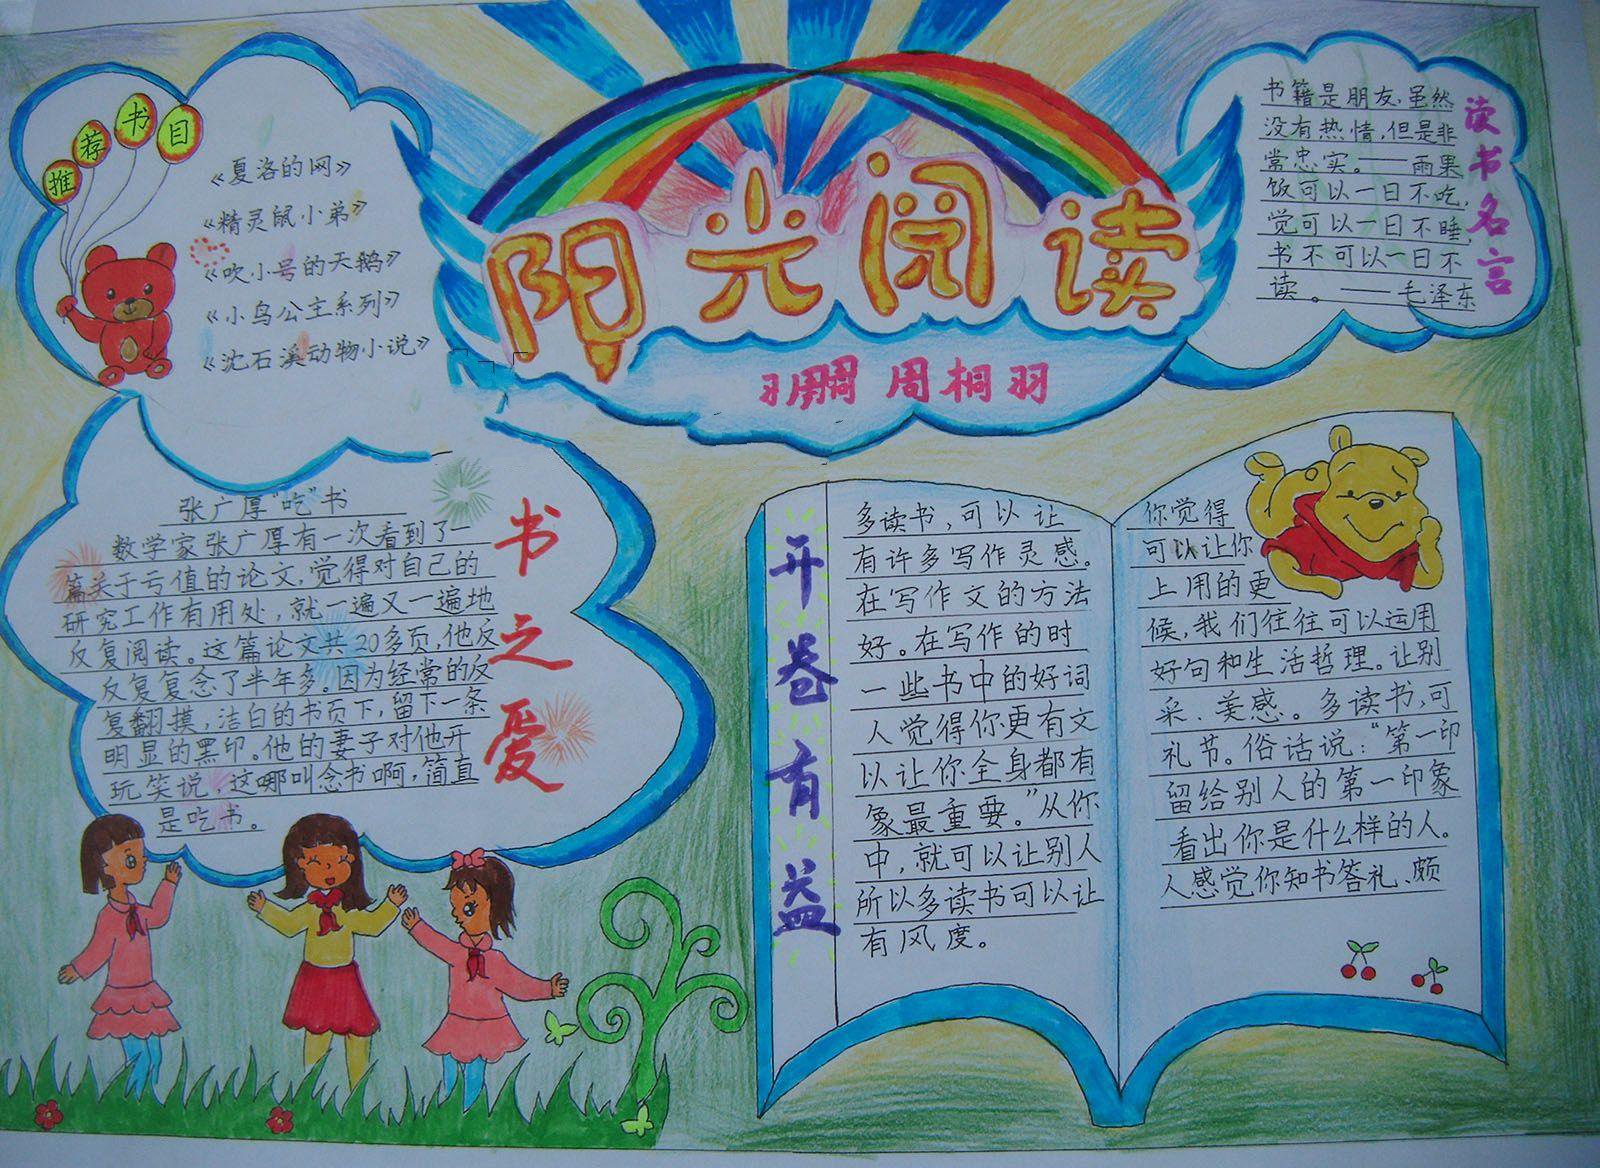 阳光阅读
周桐羽
推荐书目
《夏洛的网》
《精灵鼠小弟》
《吹小号的天鹅》
《小鸟公主系列》
《沈石溪动物小说》
读书名言
书籍是朋友,虽然
没有热情,但是非
常忠实。——雨果
饭可以一日不吃,
觉可以一日不睡,
书不可以一日不
读。——毛泽东
书之爱
张广厚“吃”书
数学家张广厚有一次看到了一
篇关于亏值的论文,觉得对自己的
研究工作有用处,就一遍又一遍地
反复阅读。这篇论文共20多页,他反
反复复念了半年多。因为经常的反
复翻摸,洁白的书页下,留下一条
明显的黑印。他的妻子对他开
玩笑说,这哪叫念书啊,简直
是吃书。
开卷有益
多读书,可以让
有许多写作灵感。
在写作文的方法
好。在写作的时
一些书中的好词
人觉得你更有文
以让你全身都有
象最重要。”从你
中,就可以让别人
所以多读书可以让
有风度。
你觉得
可以让你
上用的更
候,我们往往可以运用
好句和生活哲理。让别
采、美感。多读书,可
礼节。俗话说:“第一印
留给别人的第一印象
看出你是什么样的人。
人感觉你知书答礼、颇